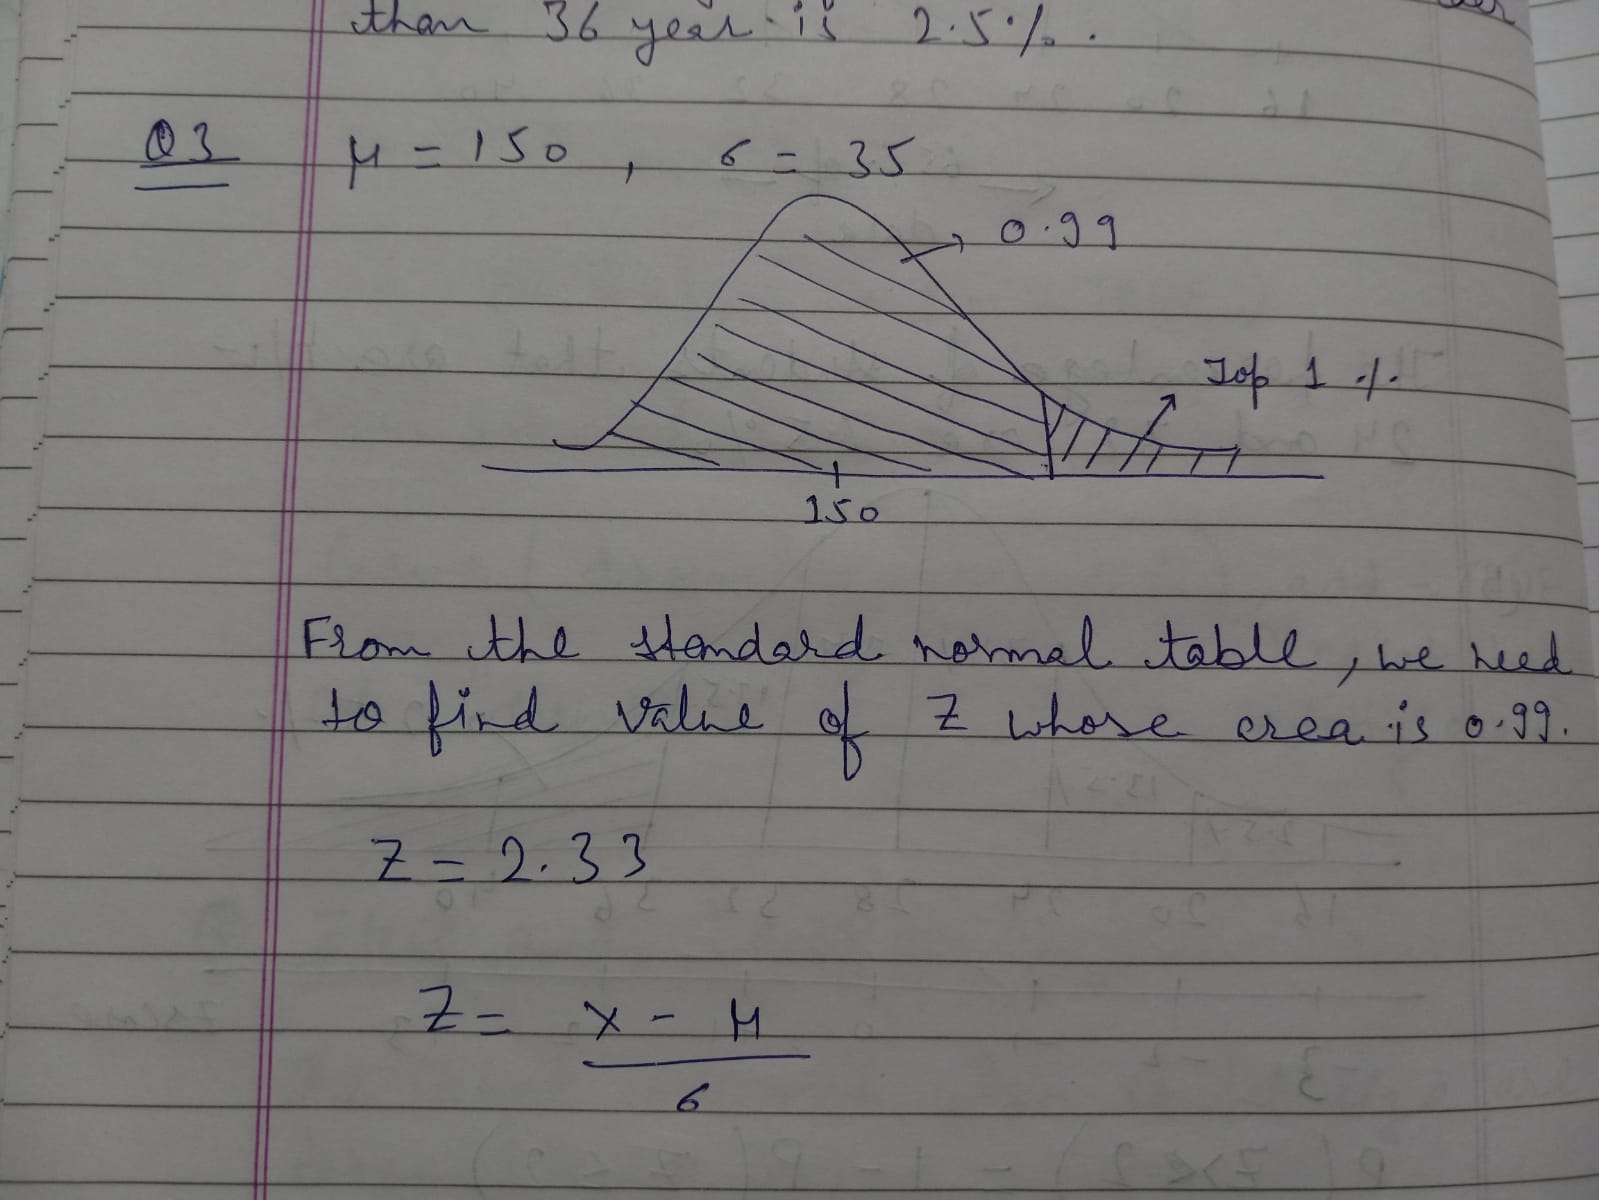 than 36 year is 2.5%.
Q3 μ = 150, σ = 35
0.99
Top 1 %
150
From the standard normal table, we need
to find value of Z whose area is 0.99.
Z = 2.33
Z = x - μ
σ